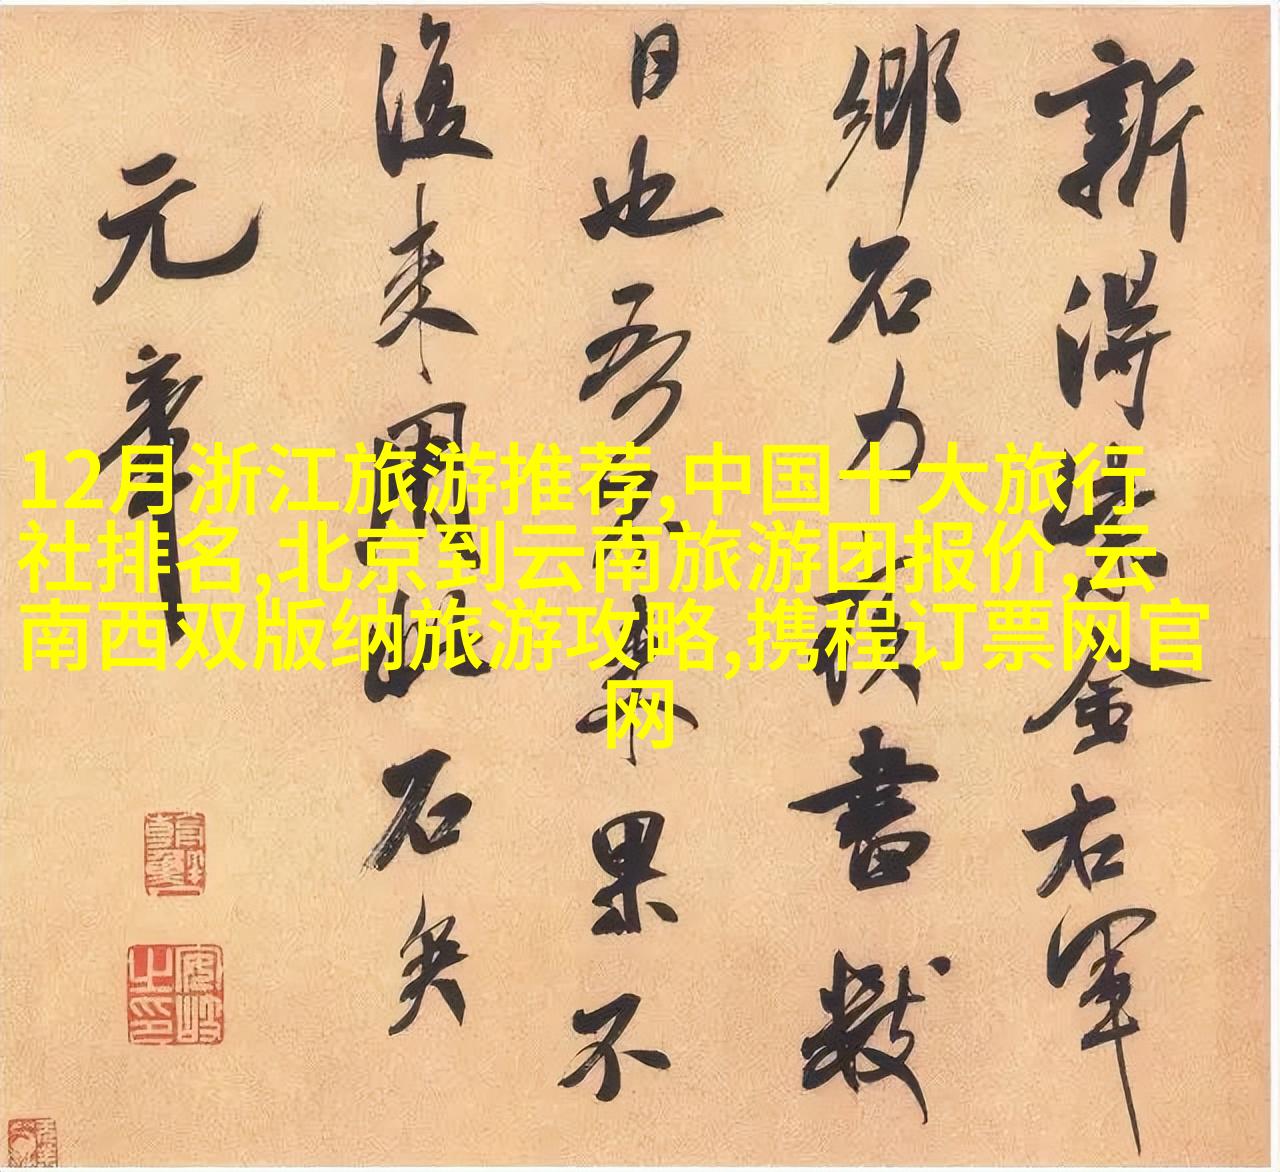 新得紫金右軍
鄉石力疾書數
日也吾來果不
復來用此石矣
元章
12月浙江旅游推荐,中国十大旅行
社排名,北京到云南旅游团报价,云
南西双版纳旅游攻略,携程订票网官
网